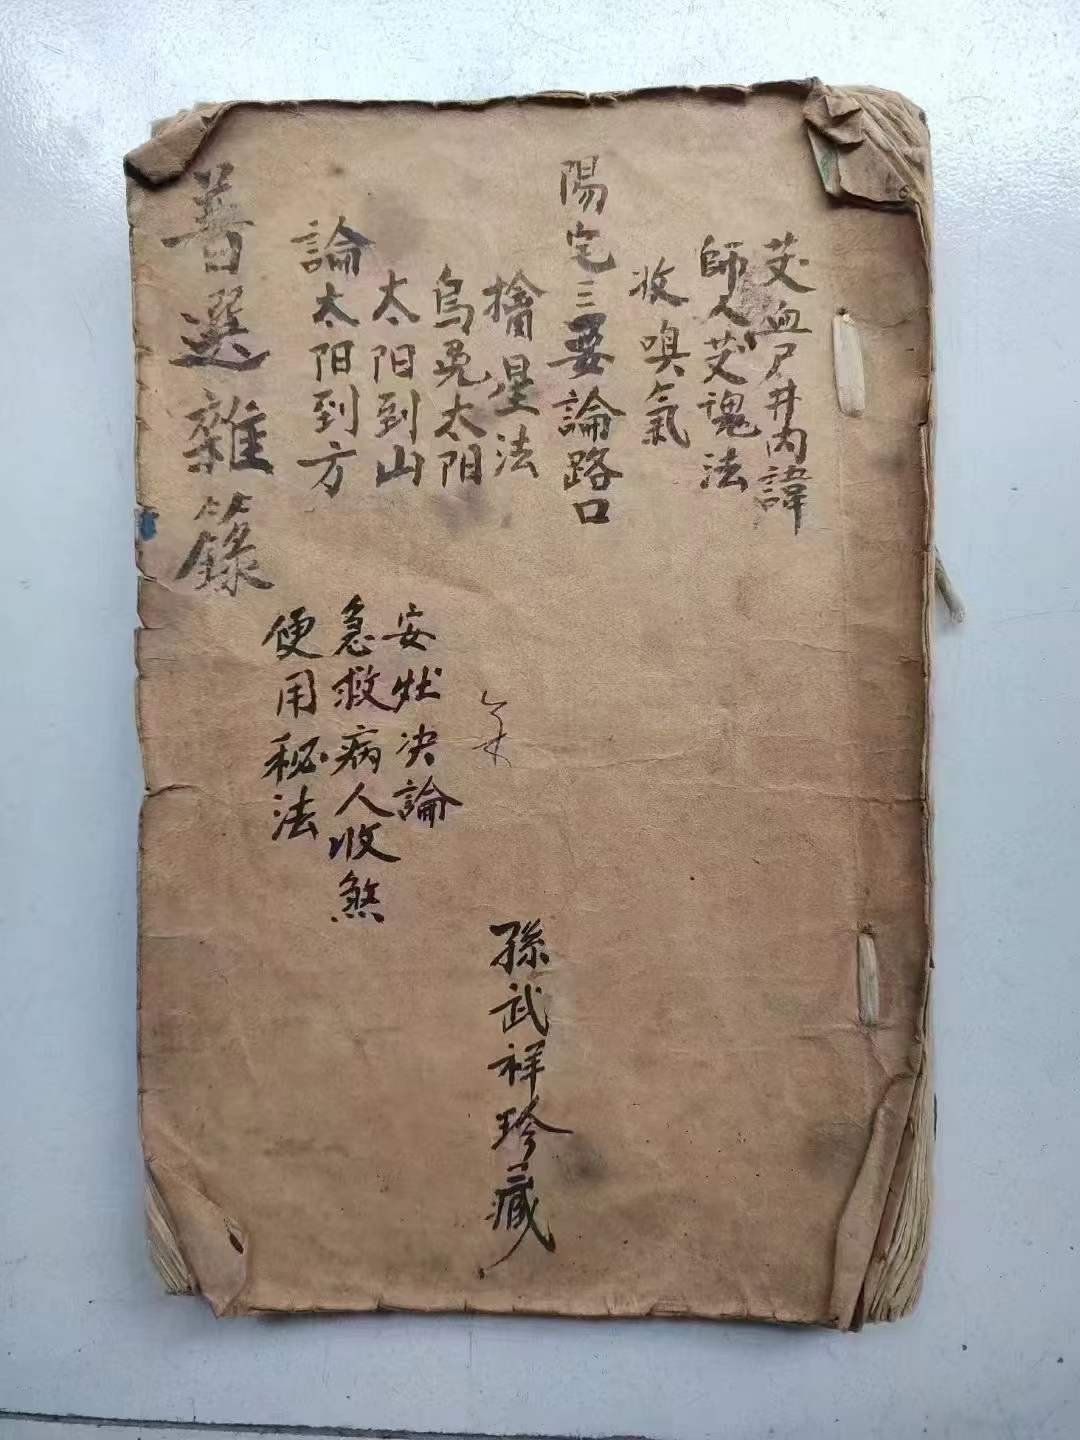 茇血尸井內諱
師人茇魂法
收嗅氣
陽宅三要論路口
擒星法
烏兎太阳
太阳到山
論太阳到方
善選雜錄
安狀决論
急救病人收煞
便用秘法
孫武祥珍藏